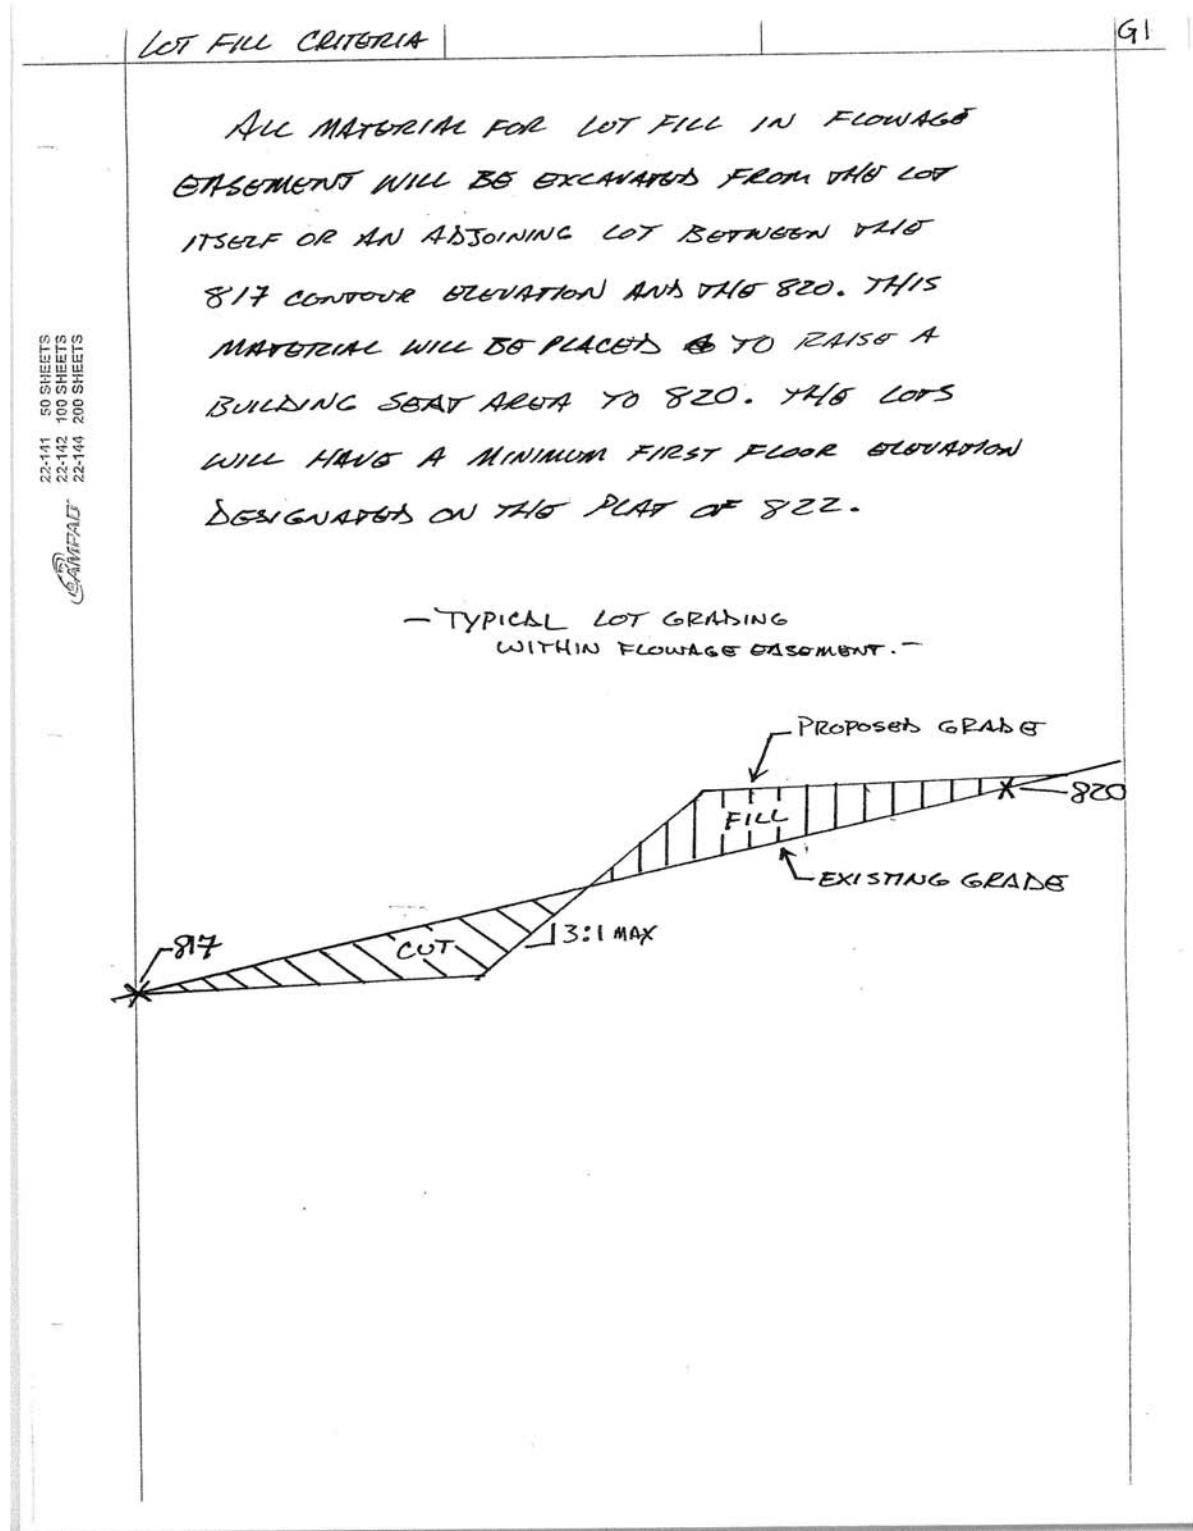 LOT FILL CRITERIA
G1
ALL MATERIAL FOR LOT FILL IN FLOWAGE
EASEMENT WILL BE EXCAVATED FROM THE LOT
ITSELF OR AN ADJOINING LOT BETWEEN THE
817 CONTOUR ELEVATION AND THE 820. THIS
MATERIAL WILL BE PLACED TO RAISE A
BUILDING SEAT AREA TO 820. THE LOTS
WILL HAVE A MINIMUM FIRST FLOOR ELEVATION
DESIGNATED ON THE PLAT OF 822.
22-141 50 SHEETS
22-142 100 SHEETS
22-144 200 SHEETS
CAMPAD
- TYPICAL LOT GRADING
WITHIN FLOWAGE EASEMENT. -
PROPOSED GRADE
820
FILL
EXISTING GRADE
3:1 MAX
CUT
817